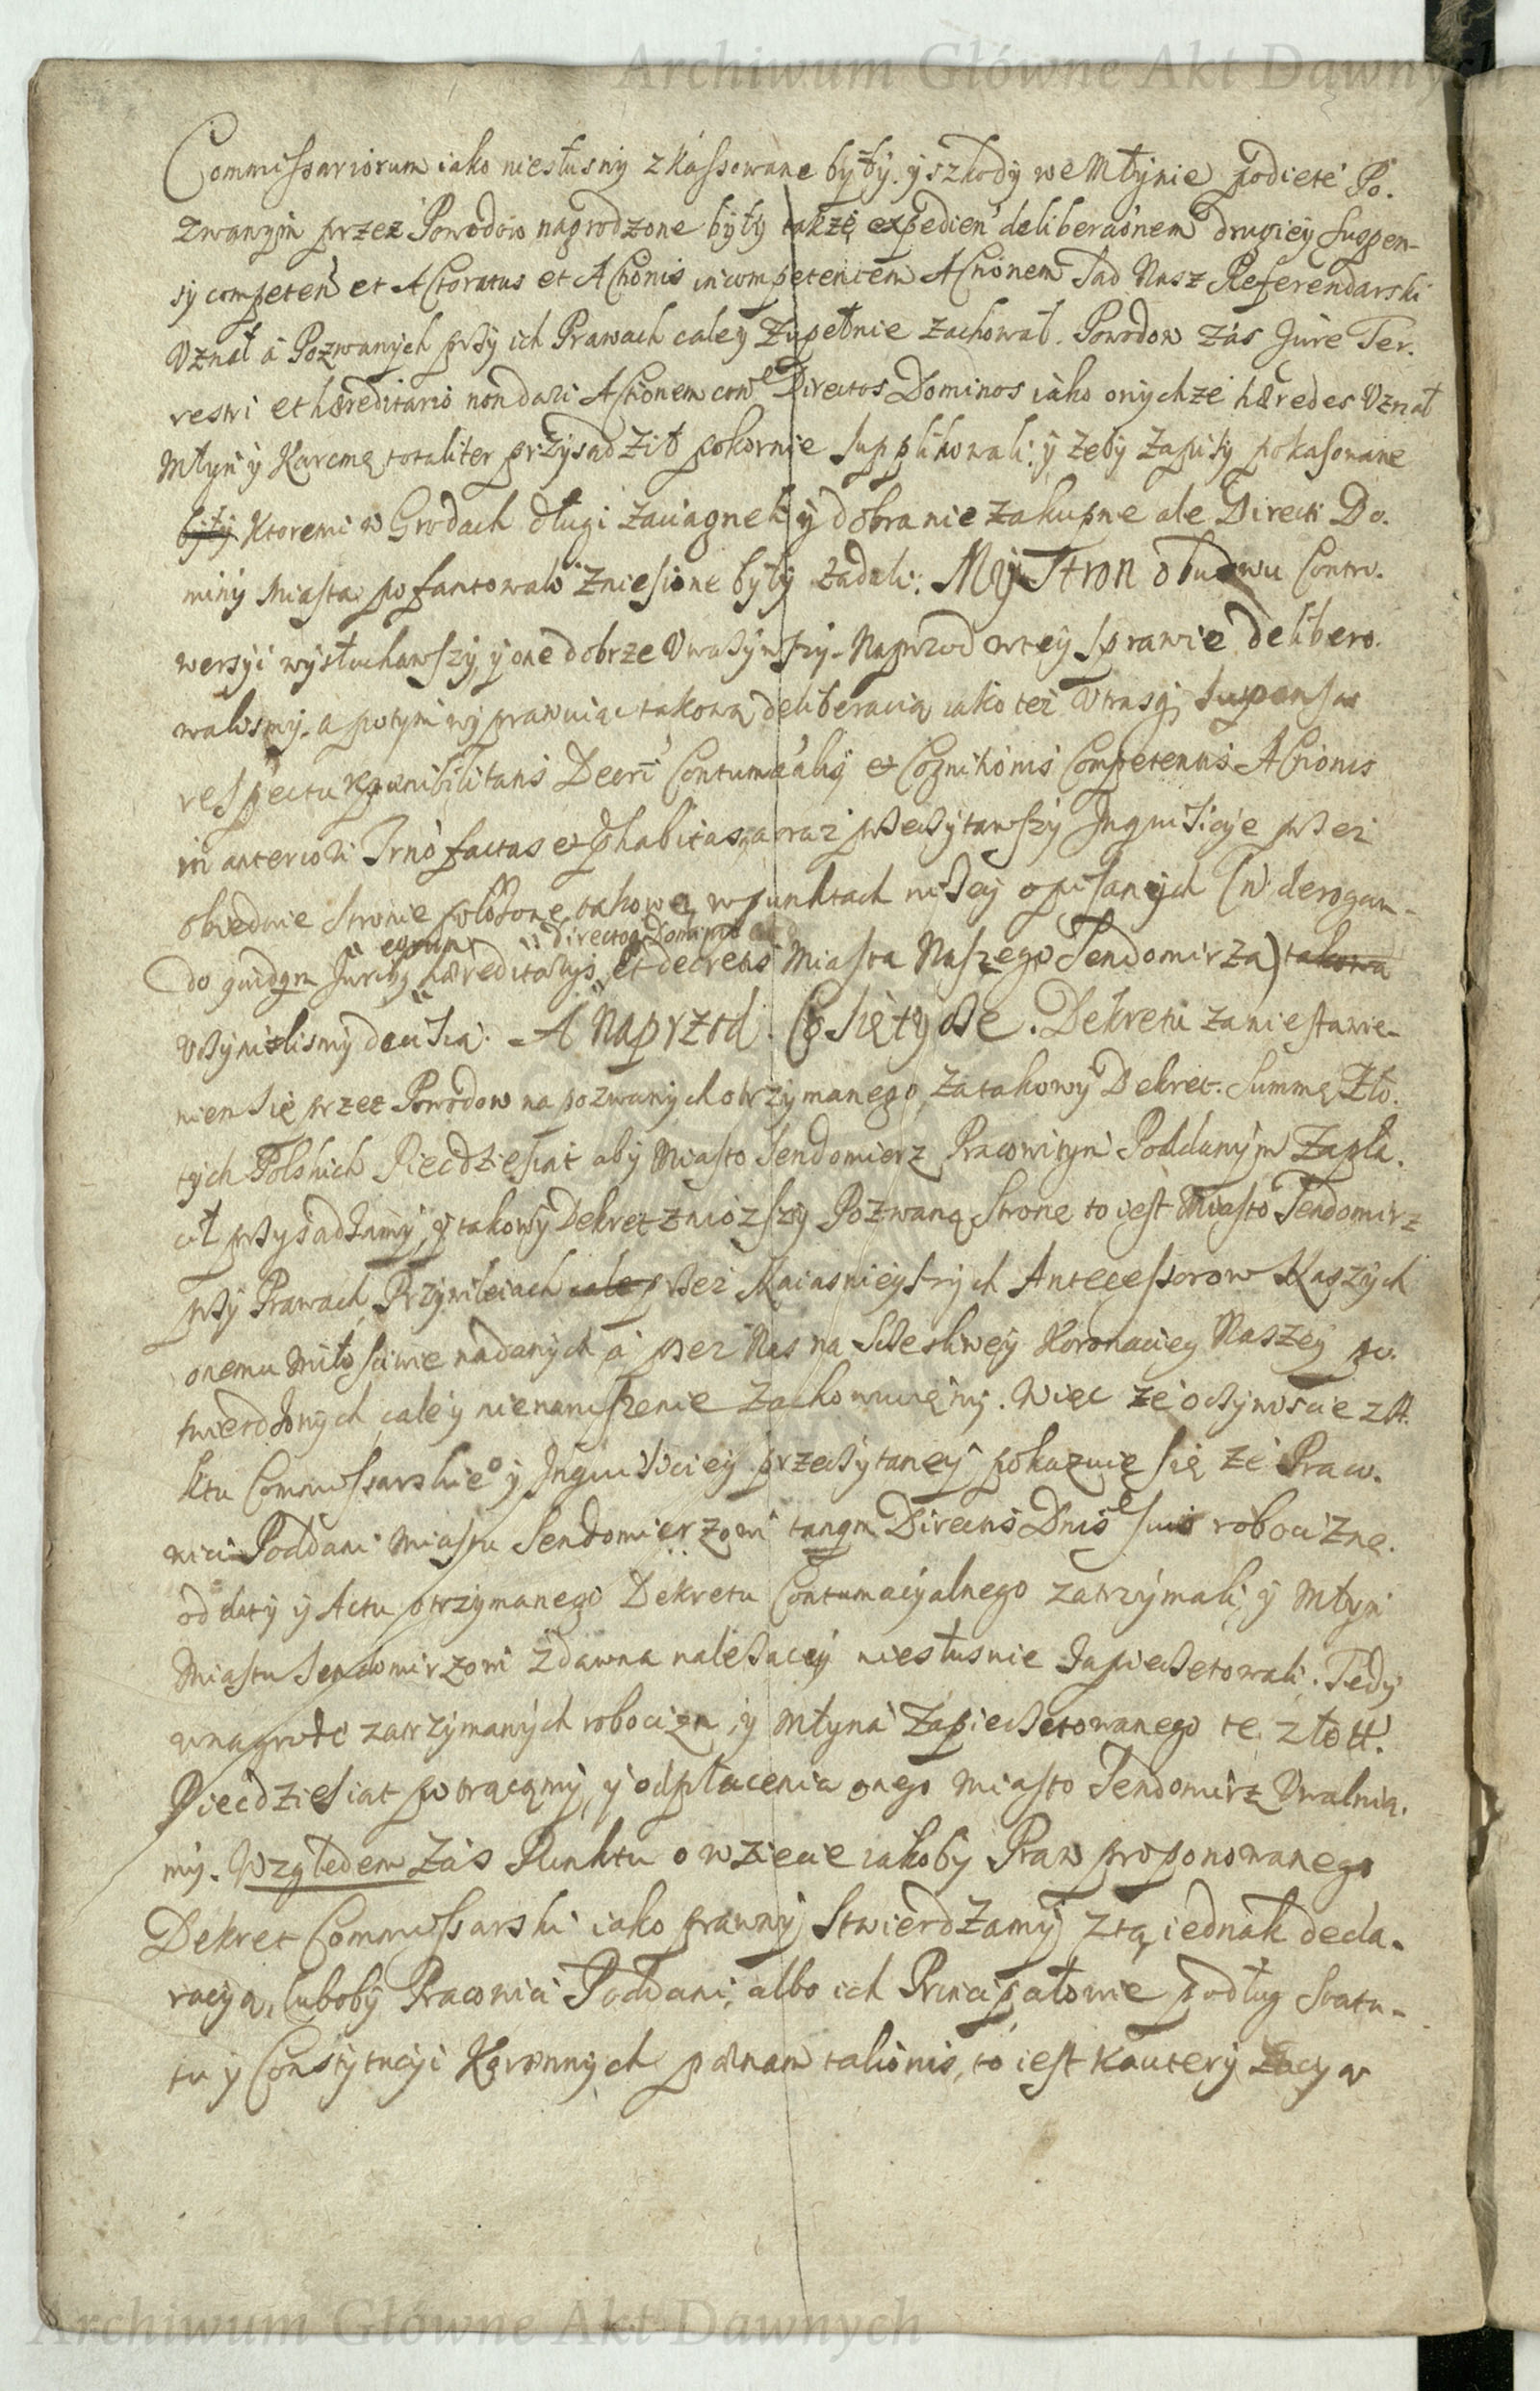 Archiwum Główne Akt Dawnych
Commissariorum iako niesłusny zkassowane były. y szkody we Młynie podięte Po.
zwanym przez Powodow nagrodzone były także expedien deliberaonem drugiey suspen-
sy competen et Actoratus et Actionis incompetentem Actionem Sad Nasz Referendarski
Uznał a Pozwanych przy ich Prawach cale y Zupełnie zachował. Powodow zas Jure Ter.
restri et hæreditario non dari Actionem con Directos Dominos iako onychże hæredes Uznał
Młyn y Karcmę totaliter przysądził pokornie supplikowali; y żeby zapisy pokasowane
były Ktoremi w Grodach długi zaciagneli y dobra nie zakupne ale Directi Do.
miny Miasta pofantowali zniesione były żadali: My Stron obudwu Contro.
wersyi wysłuchawszy, y one dobrze Uważywszy. Naprzod w tey sprawie delibero.
walismy. a potym wyprawuiąc takową deliberacią iako też Utrasq suspensas
respectu Decri Contumalis et Cognitionis Competentis Actionis
in anteriori Trno factas et habitas, zaraz przeczytawszy Inquisicije przez
obiedwie stronie położone takową w punktach niżey opisanych (n. derogan-
egrum directoq Dominio
do quidqm Juribq hæreditarys et decretis Miasta Naszego Sendomirza) takowa
Uczynilismy decisią. A Naprzod. Co się tycze. Dekretu za niestawie-
niem się przez Powodow na pozwanych otrzymanego, za takowy Dekret. Summę Zło.
tych Polskich Pięcdziesiat aby Miasto Sendomierz Pracowitym Poddanym Zapła.
cił przysądzamy, y takowy Dekret zniozszy Pozwaną Stronę to iest Miasto Sendomirz
przy Prawach, Przywileiach cale przez Naiasnieyszych Antecessorow Naszych
onemu Miłosciwie nadanych, a przez Nas na Szczesliwey Koronacieg Naszey po.
twierdzonych, cale y nienaruszenie zachowuięmy. Więc że oczywiscie z A.
ktu Commissarskieo y Inquisiciey przeczytaney pokazuię się że Praco.
wici Poddani Miastu Sendomierzowi tanqm Directis Dnis suis robociznę.
od daty y Actu otrzymanego Dekretu Contumacyalnego zatrzymali, y Młyn
Miastu Sendomirzowi zdawna należacy niesłusnie zapieczetowali. Tedy
wnagrodę zatrzymanych robocizn, y Młyna Zapieczetowanego te złott.
Pięcdziesiat potrącamy, y odpłacenia onego Miasto Sendomirz Uwalnia.
my. Względem zas Punktu o wzięcie iakoby Praw proponowanego
Dekret Commissarski iako prawny Stwierdzamy z tą iednak decla-
racyą, luboby Pracowici Poddani, albo ich Principałowie podług Statu-
tu y Constytucyi Koronnych pœnam talionis, to iest
Archiwum Główne Akt Dawnych